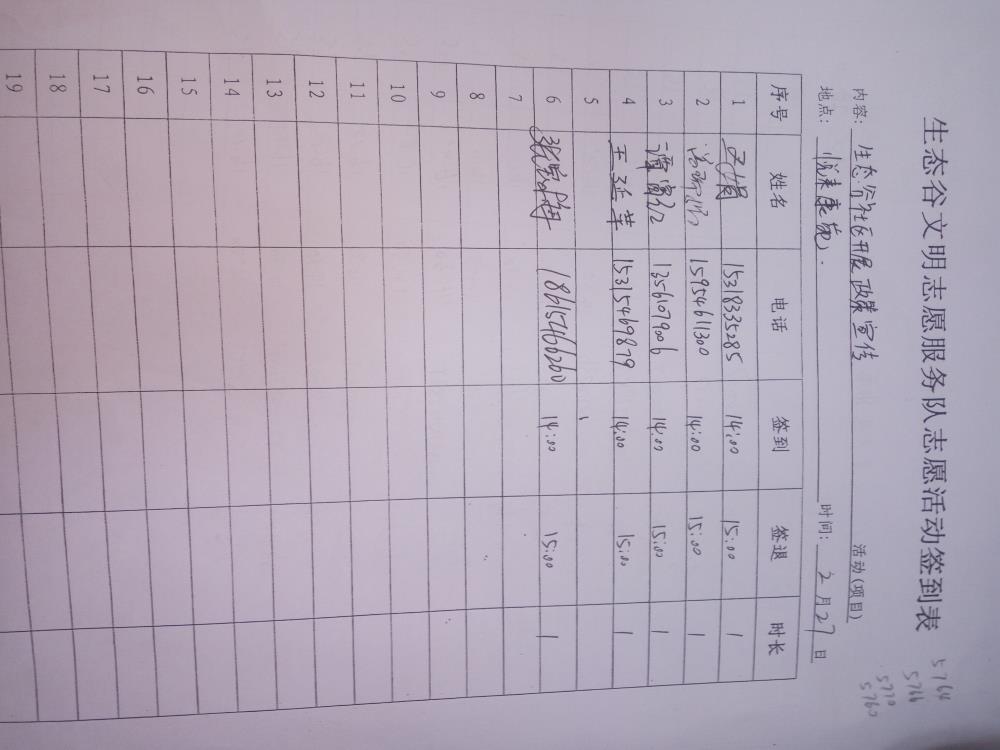 生态谷文明志愿服务队志愿活动签到表
5764
5766
5770
5760
内容: 生态谷社区开展政策宣传 活动(项目)
地点: 悦来康苑 时间: 2月27日
序号 姓名 电话 签到 签退 时长
1 15318335285 14:00 15:00 1
2 15954611300 14:00 15:00 1
3 谭富红 13561079006 14:00 15:00 1
4 王延华 15315469879 14:00 15:00 1
5
6 18615466260 14:00 15:00 1
7
8
9
10
11
12
13
14
15
16
17
18
19